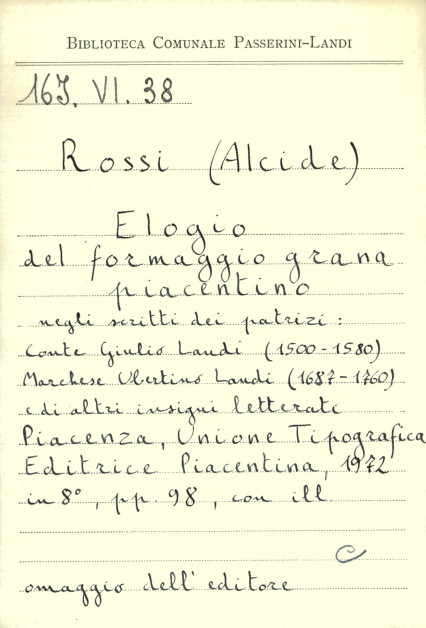 BIBLIOTECA COMUNALE PASSERINI-LANDI
16J. VI. 38
Rossi (Alcide)
Elogio
del formaggio grana
piacentino
negli scritti dei patrizi:
Conte Giulio Landi (1500-1580)
Marchese Ubertino Landi (1687-1760)
e di altri insigni letterati
Piacenza, Unione Tipografica
Editrice Piacentina, 1972
in 8°, pp. 98, con ill.
C
omaggio dell'editore